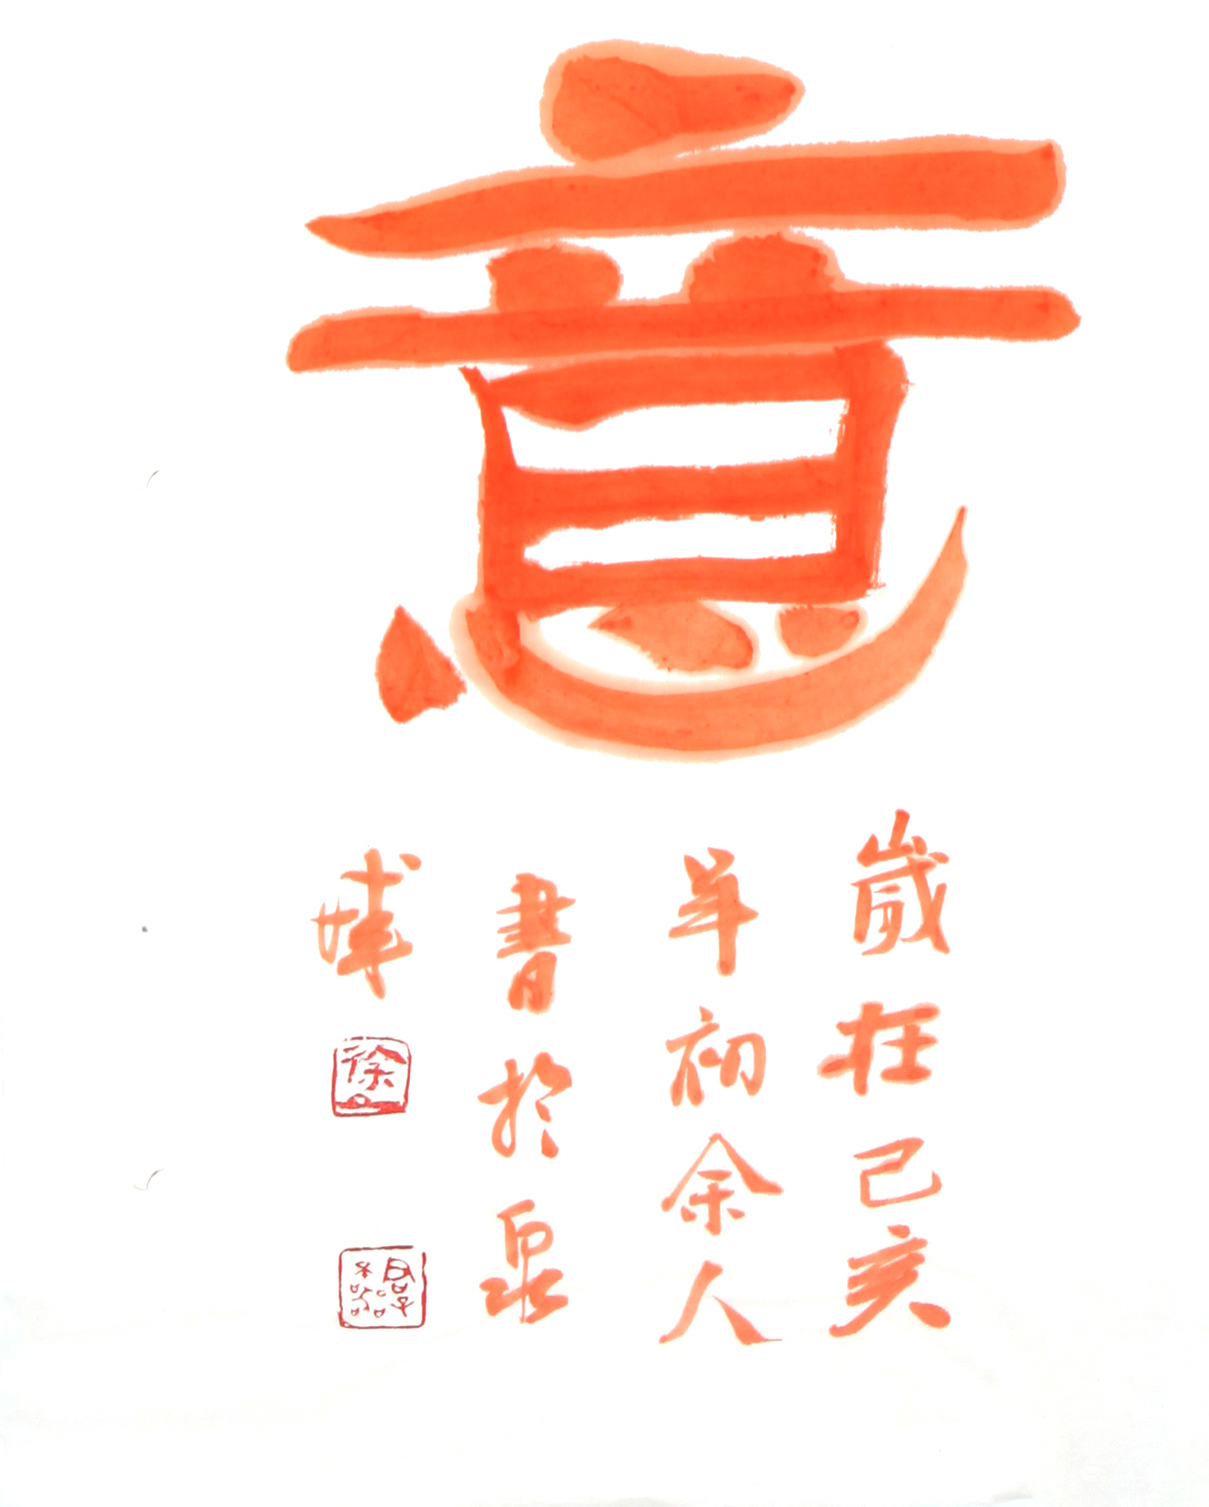 意
歲在己亥
羊初余人
書於泉
城
徐